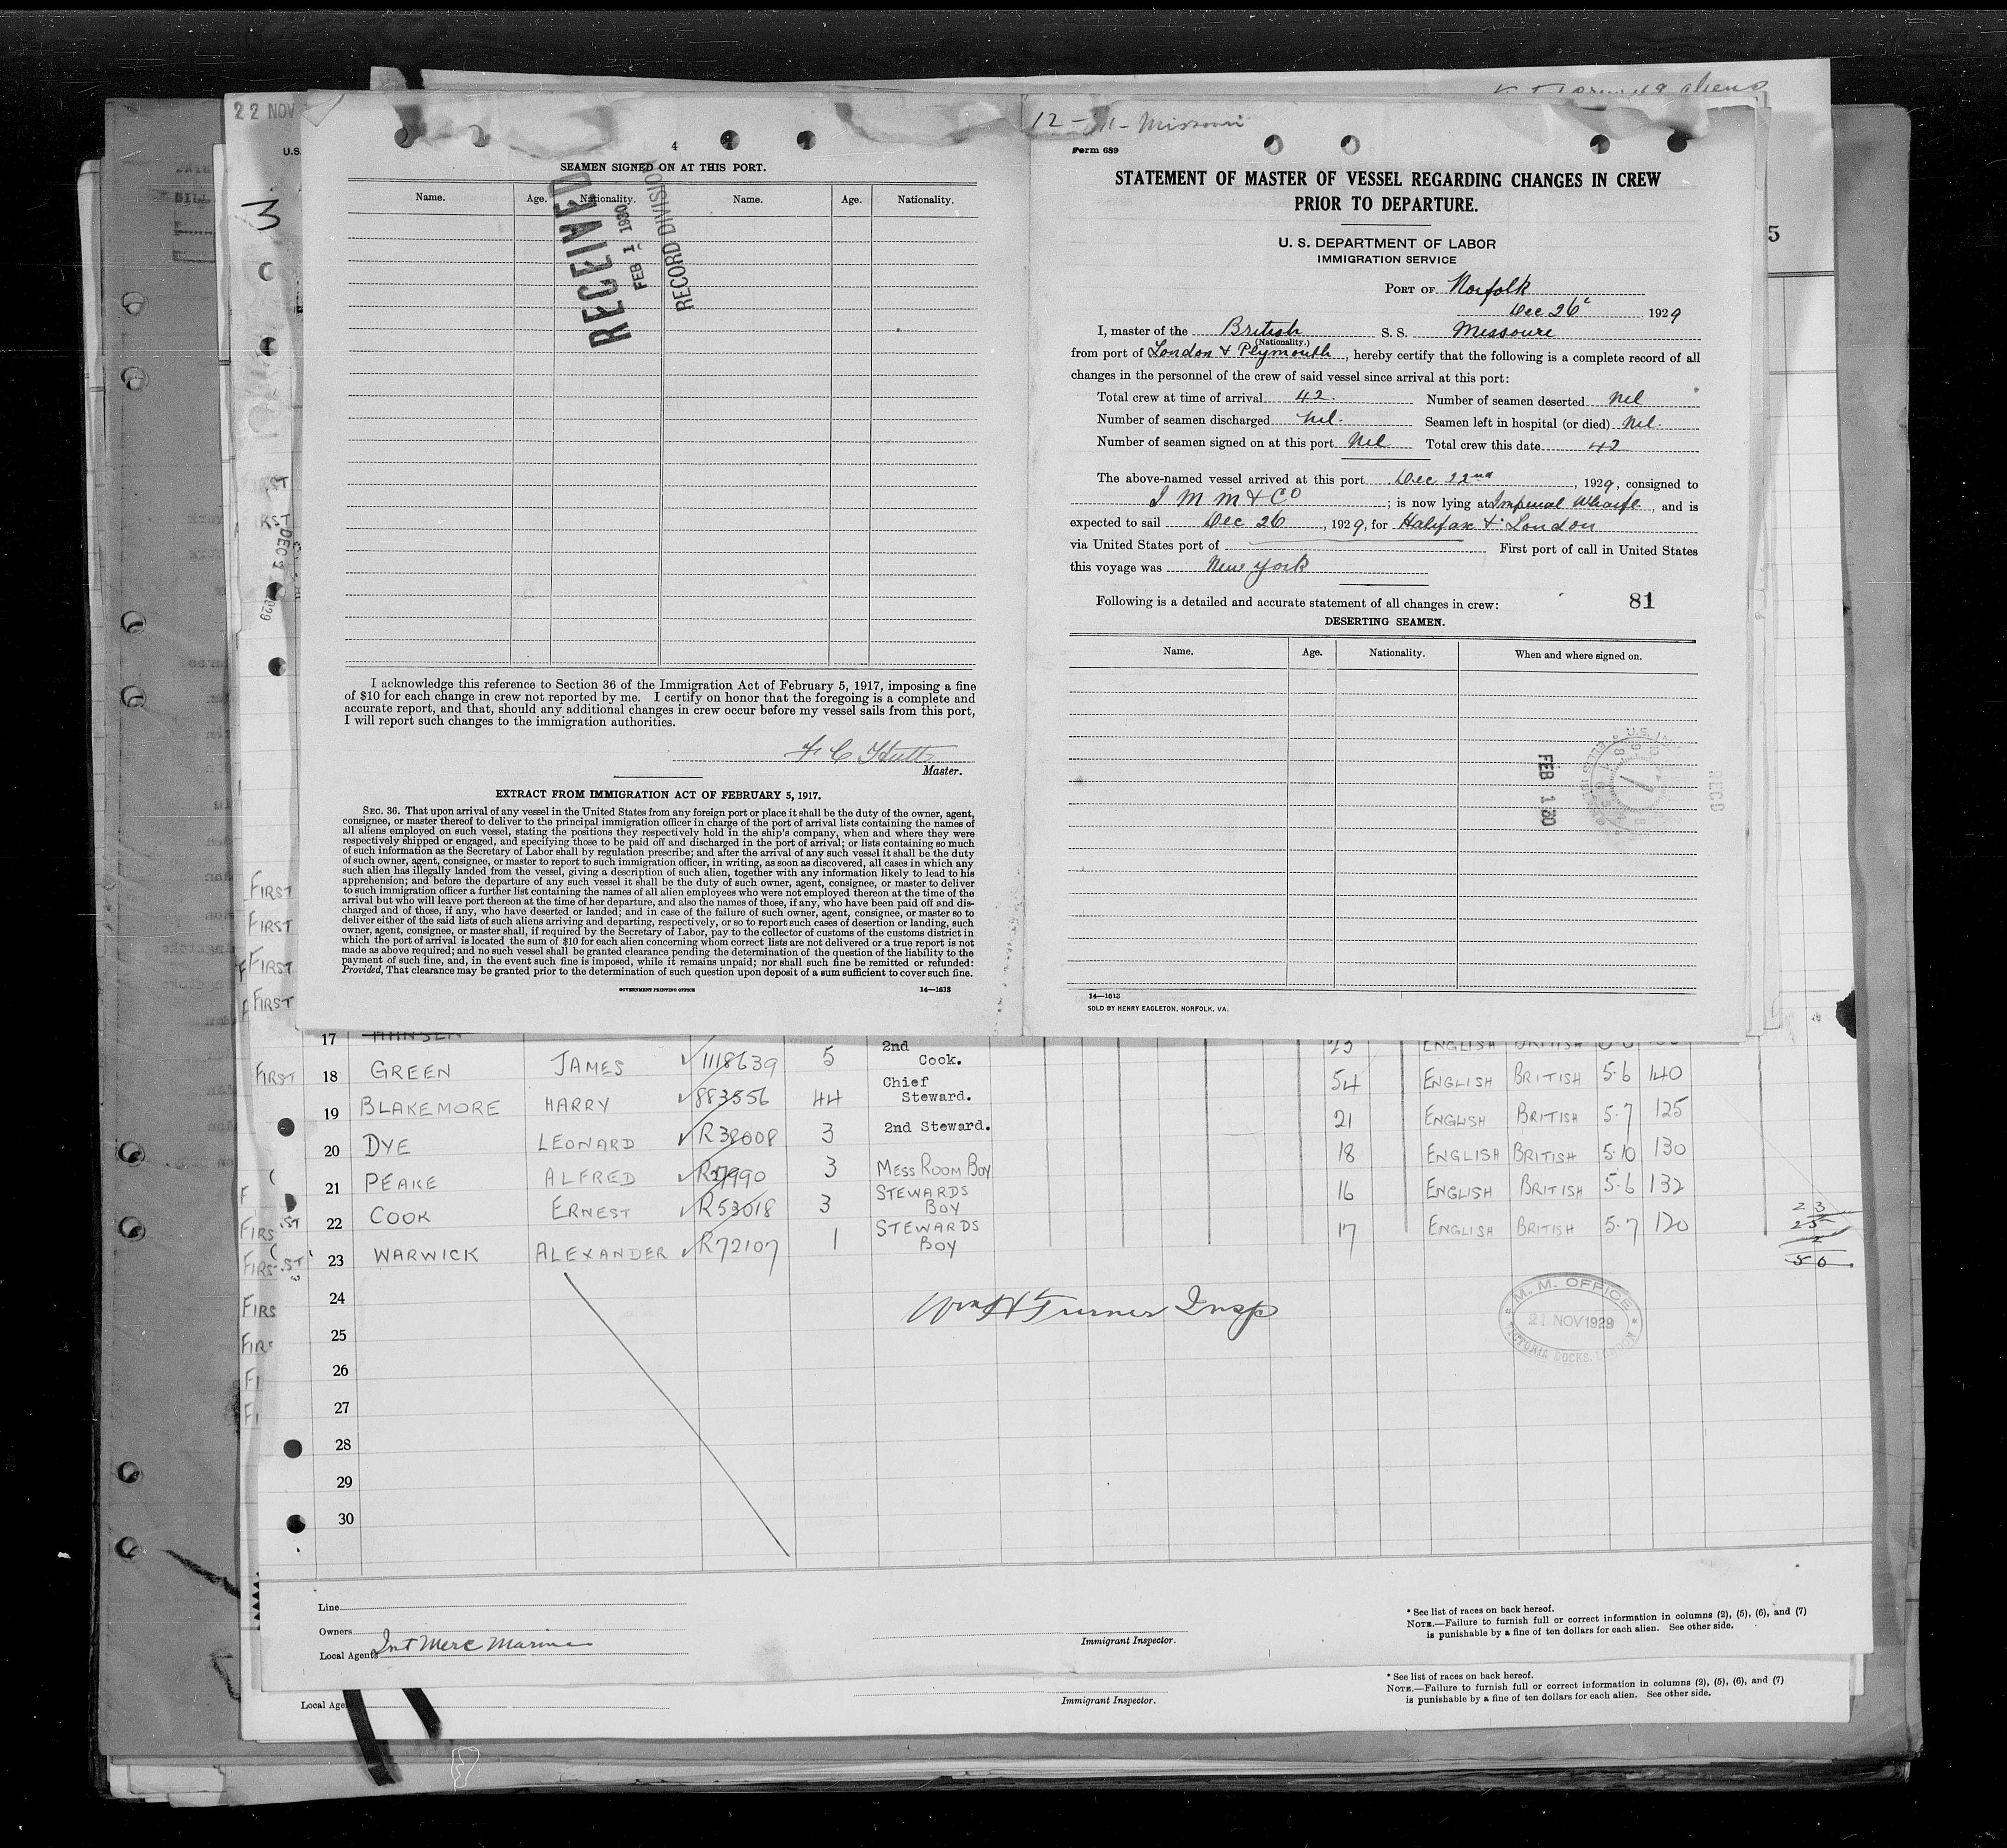 22 NOV
U.S.
3
4
SEAMEN SIGNED ON AT THIS PORT.
Name. Age. Nationality. Name. Age. Nationality.
RECEIVED
FEB 1 1930
RECORD DIVISION
I acknowledge this reference to Section 36 of the Immigration Act of February 5, 1917, imposing a fine
of $10 for each change in crew not reported by me. I certify on honor that the foregoing is a complete and
accurate report, and that, should any additional changes in crew occur before my vessel sails from this port,
I will report such changes to the immigration authorities.
Master.
EXTRACT FROM IMMIGRATION ACT OF FEBRUARY 5, 1917.
SEC. 36. That upon arrival of any vessel in the United States from any foreign port or place it shall be the duty of the owner, agent,
consignee, or master thereof to deliver to the principal immigration officer in charge of the port of arrival lists containing the names of
all aliens employed on such vessel, stating the positions they respectively hold in the ship's company, when and where they were
respectively shipped or engaged, and specifying those to be paid off and discharged in the port of arrival; or lists containing so much
of such information as the Secretary of Labor shall by regulation prescribe; and after the arrival of any such vessel it shall be the duty
of such owner, agent, consignee, or master to report to such immigration officer, in writing, as soon as discovered, all cases in which any
such alien has illegally landed from the vessel, giving a description of such alien, together with any information likely to lead to his
apprehension; and before the departure of any such vessel it shall be the duty of such owner, agent, consignee, or master to deliver
to such immigration officer a further list containing the names of all alien employees who were not employed thereon at the time of the
arrival but who will leave port thereon at the time of her departure, and also the names of those, if any, who have been paid off and dis-
charged and of those, if any, who have deserted or landed; and in case of the failure of such owner, agent, consignee, or master so to
deliver either of the said lists of such aliens arriving and departing, respectively, or so to report such cases of desertion or landing, such
owner, agent, consignee, or master shall, if required by the Secretary of Labor, pay to the collector of customs of the customs district in
which the port of arrival is located the sum of $10 for each alien concerning whom correct lists are not delivered or a true report is not
made as above required; and no such vessel shall be granted clearance pending the determination of the question of the liability to the
payment of such fine, and, in the event such fine is imposed, while it remains unpaid; nor shall such fine be remitted or refunded:
Provided, That clearance may be granted prior to the determination of such question upon deposit of a sum sufficient to cover such fine.
GOVERNMENT PRINTING OFFICE 14—1613
aliens
5
Missouri
Form 689
STATEMENT OF MASTER OF VESSEL REGARDING CHANGES IN CREW
PRIOR TO DEPARTURE.
U. S. DEPARTMENT OF LABOR
IMMIGRATION SERVICE
PORT OF Norfolk
Dec 26, 1929
I, master of the British S. S. Missoure
(Nationality.)
from port of London & Plymouth, hereby certify that the following is a complete record of all
changes in the personnel of the crew of said vessel since arrival at this port:
Total crew at time of arrival 42. Number of seamen deserted Nil
Number of seamen discharged Nil. Seamen left in hospital (or died) Nil.
Number of seamen signed on at this port Nil Total crew this date 42
The above-named vessel arrived at this port Dec 22nd, 1929, consigned to
I M M & Co; is now lying at Imperial Wharf, and is
expected to sail Dec 26, 1929, for Halifax & London
via United States port of First port of call in United States
this voyage was New York
Following is a detailed and accurate statement of all changes in crew: 81
DESERTING SEAMEN.
Name. Age. Nationality. When and where signed on.
FEB 1 30
RECD
14—1613
SOLD BY HENRY EAGLETON, NORFOLK, VA.
FIRST
FIRST
FIRST
FIRST
17 HANSEN
FIRST 18 GREEN JAMES 1118639 5 2nd Cook. 54 ENGLISH BRITISH 5·6 140
19 BLAKEMORE HARRY 883556 44 Chief Steward. 21 ENGLISH BRITISH 5·7 125
20 DYE LEONARD R38008 3 2nd Steward. 18 ENGLISH BRITISH 5·10 130
21 PEAKE ALFRED 3 MESS ROOM BOY 16 ENGLISH BRITISH 5·6 132
22 COOK ERNEST R53018 3 STEWARDS BOY 17 ENGLISH BRITISH 5·7 120
23 WARWICK ALEXANDER R72107 1 STEWARDS BOY
24
Wm H Turner Insp
M. M. OFFICE
21 NOV 1929
VICTORIA DOCKS, LONDON
25
26
27
28
29
30
Line
Owners
Local Agents Int Merc Marine
Immigrant Inspector.
* See list of races on back hereof.
NOTE.—Failure to furnish full or correct information in columns (2), (5), (6), and (7)
is punishable by a fine of ten dollars for each alien. See other side.
Local Age
Immigrant Inspector.
* See list of races on back hereof.
NOTE.—Failure to furnish full or correct information in columns (2), (5), (6), and (7)
is punishable by a fine of ten dollars for each alien. See other side.